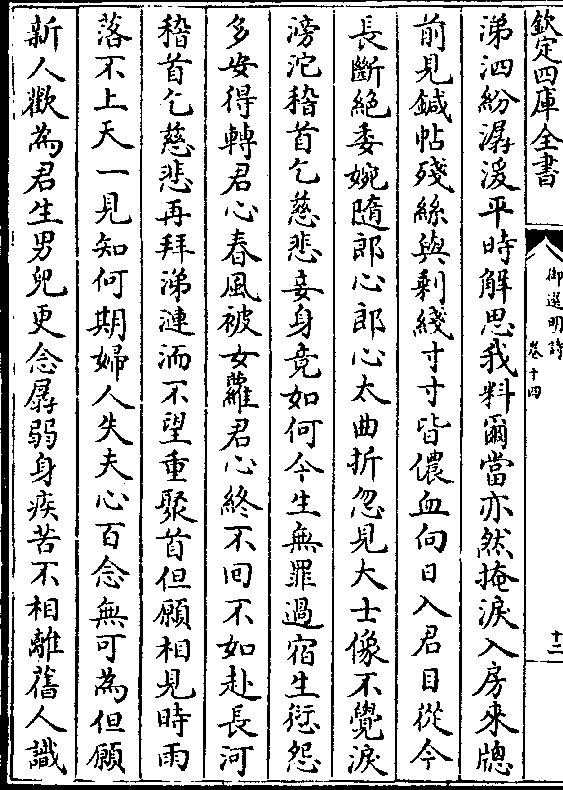 欽定四庫全書
御選明詩
卷十四
十二
涕泗紛潺湲平時解思我料爾當亦然掩淚入房來牕
前見鍼帖殘絲與剩綫寸寸皆儂血向日入君目從今
長斷絶委婉隨郎心郎心太曲折忽見大士像不覺淚
滂沱稽首乞慈悲妾身竟如何今生無罪過宿生愆怨
多安得轉君心春風被女蘿君心終不回不如赴長河
稽首乞慈悲再拜涕漣洏不望重聚首但願相見時雨
落不上天一見知何期婦人失夫心百念無可為但願
新人歡為君生男兒更念孱弱身疾苦不相離舊人識